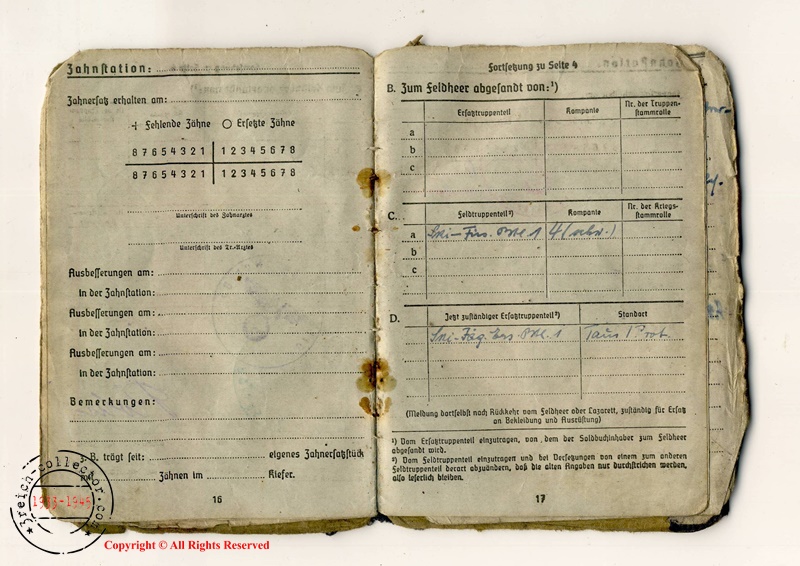 Zahnstation:
Zahnersatz erhalten am:
+ Fehlende Zähne O Ersetzte Zähne
8 7 6 5 4 3 2 1 | 1 2 3 4 5 6 7 8
8 7 6 5 4 3 2 1 | 1 2 3 4 5 6 7 8
Unterschrift des Zahnarztes
Unterschrift des Tr.-Arztes
Ausbesserungen am:
in der Zahnstation:
Ausbesserungen am:
in der Zahnstation:
Ausbesserungen am:
in der Zahnstation:
Bemerkungen:
B. trägt seit: eigenes Zahnersatzstück
Zähnen im Kiefer.
16
Fortsetzung zu Seite 4
B. Zum Feldheer abgesandt von:¹)
Ersatztruppenteil Kompanie Nr. der Truppen-
stammrolle
a
b
c
C. Feldtruppenteil²) Kompanie Nr. der Kriegs-
stammrolle
a Ski-Füs. Btl. 1 4 (schw.)
b
c
D. Jetzt zuständiger Ersatztruppenteil²) Standort
Ski-Jäg. Ers. Btl. 1 Taus / Prot.
(Meldung dortselbst nach Rückkehr vom Feldheer oder Lazarett, zuständig für Ersatz
an Bekleidung und Ausrüstung)
¹) Vom Ersatztruppenteil einzutragen, von dem der Soldbuchinhaber zum Feldheer
abgesandt wird.
²) Vom Feldtruppenteil einzutragen und bei Versetzungen von einem zum anderen
Feldtruppenteil derart abzuändern, daß die alten Angaben nur durchstrichen werden,
also leserlich bleiben.
17
3reich-collector.com
1933-1945
Copyright © All Rights Reserved